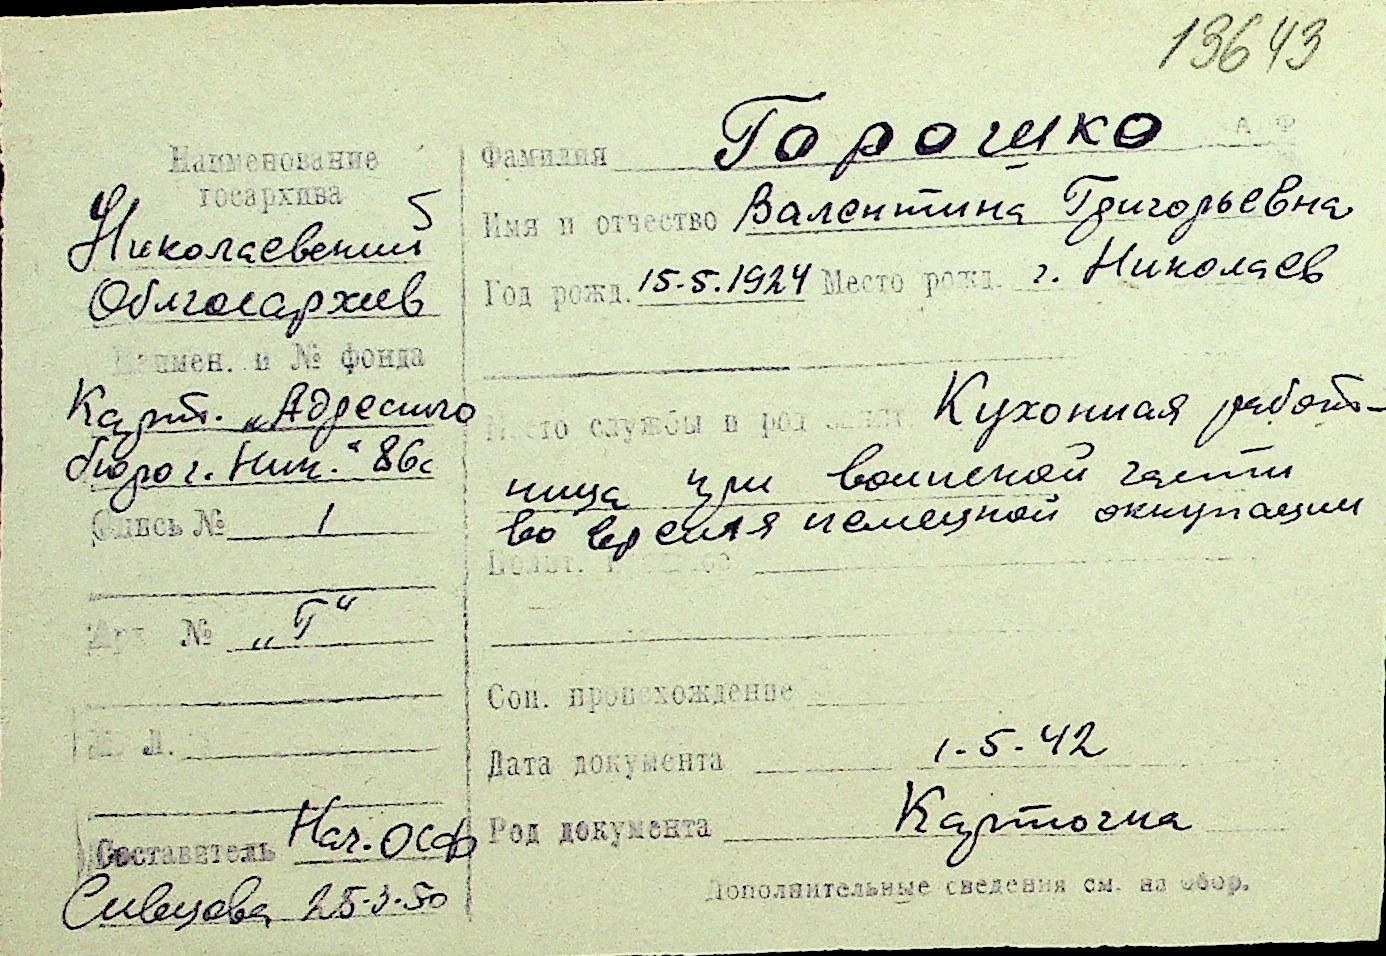 13643
А Ф
Наименование
госархива
5
Николаевский
Облгосархив
Наимен. и № фонда
Карт. „Адресного
бюро г. Ник.“ 86с
Опись № 1
Арх. № „Г“
Л. Л.
Составитель Нач. ОСФ
Сивецова 25-3-50
Фамилия Горошко
Имя и отчество Валентина Григорьевна
Год рожд. 15.5.1924 Место рожд. г. Николаев
Место службы и род занят. Кухонная работ-
ница при воинской части
во время немецкой оккупации
Соц. происхождение
Дата документа 1-5-42
Род документа Карточка
Дополнительные сведения см. на обор.